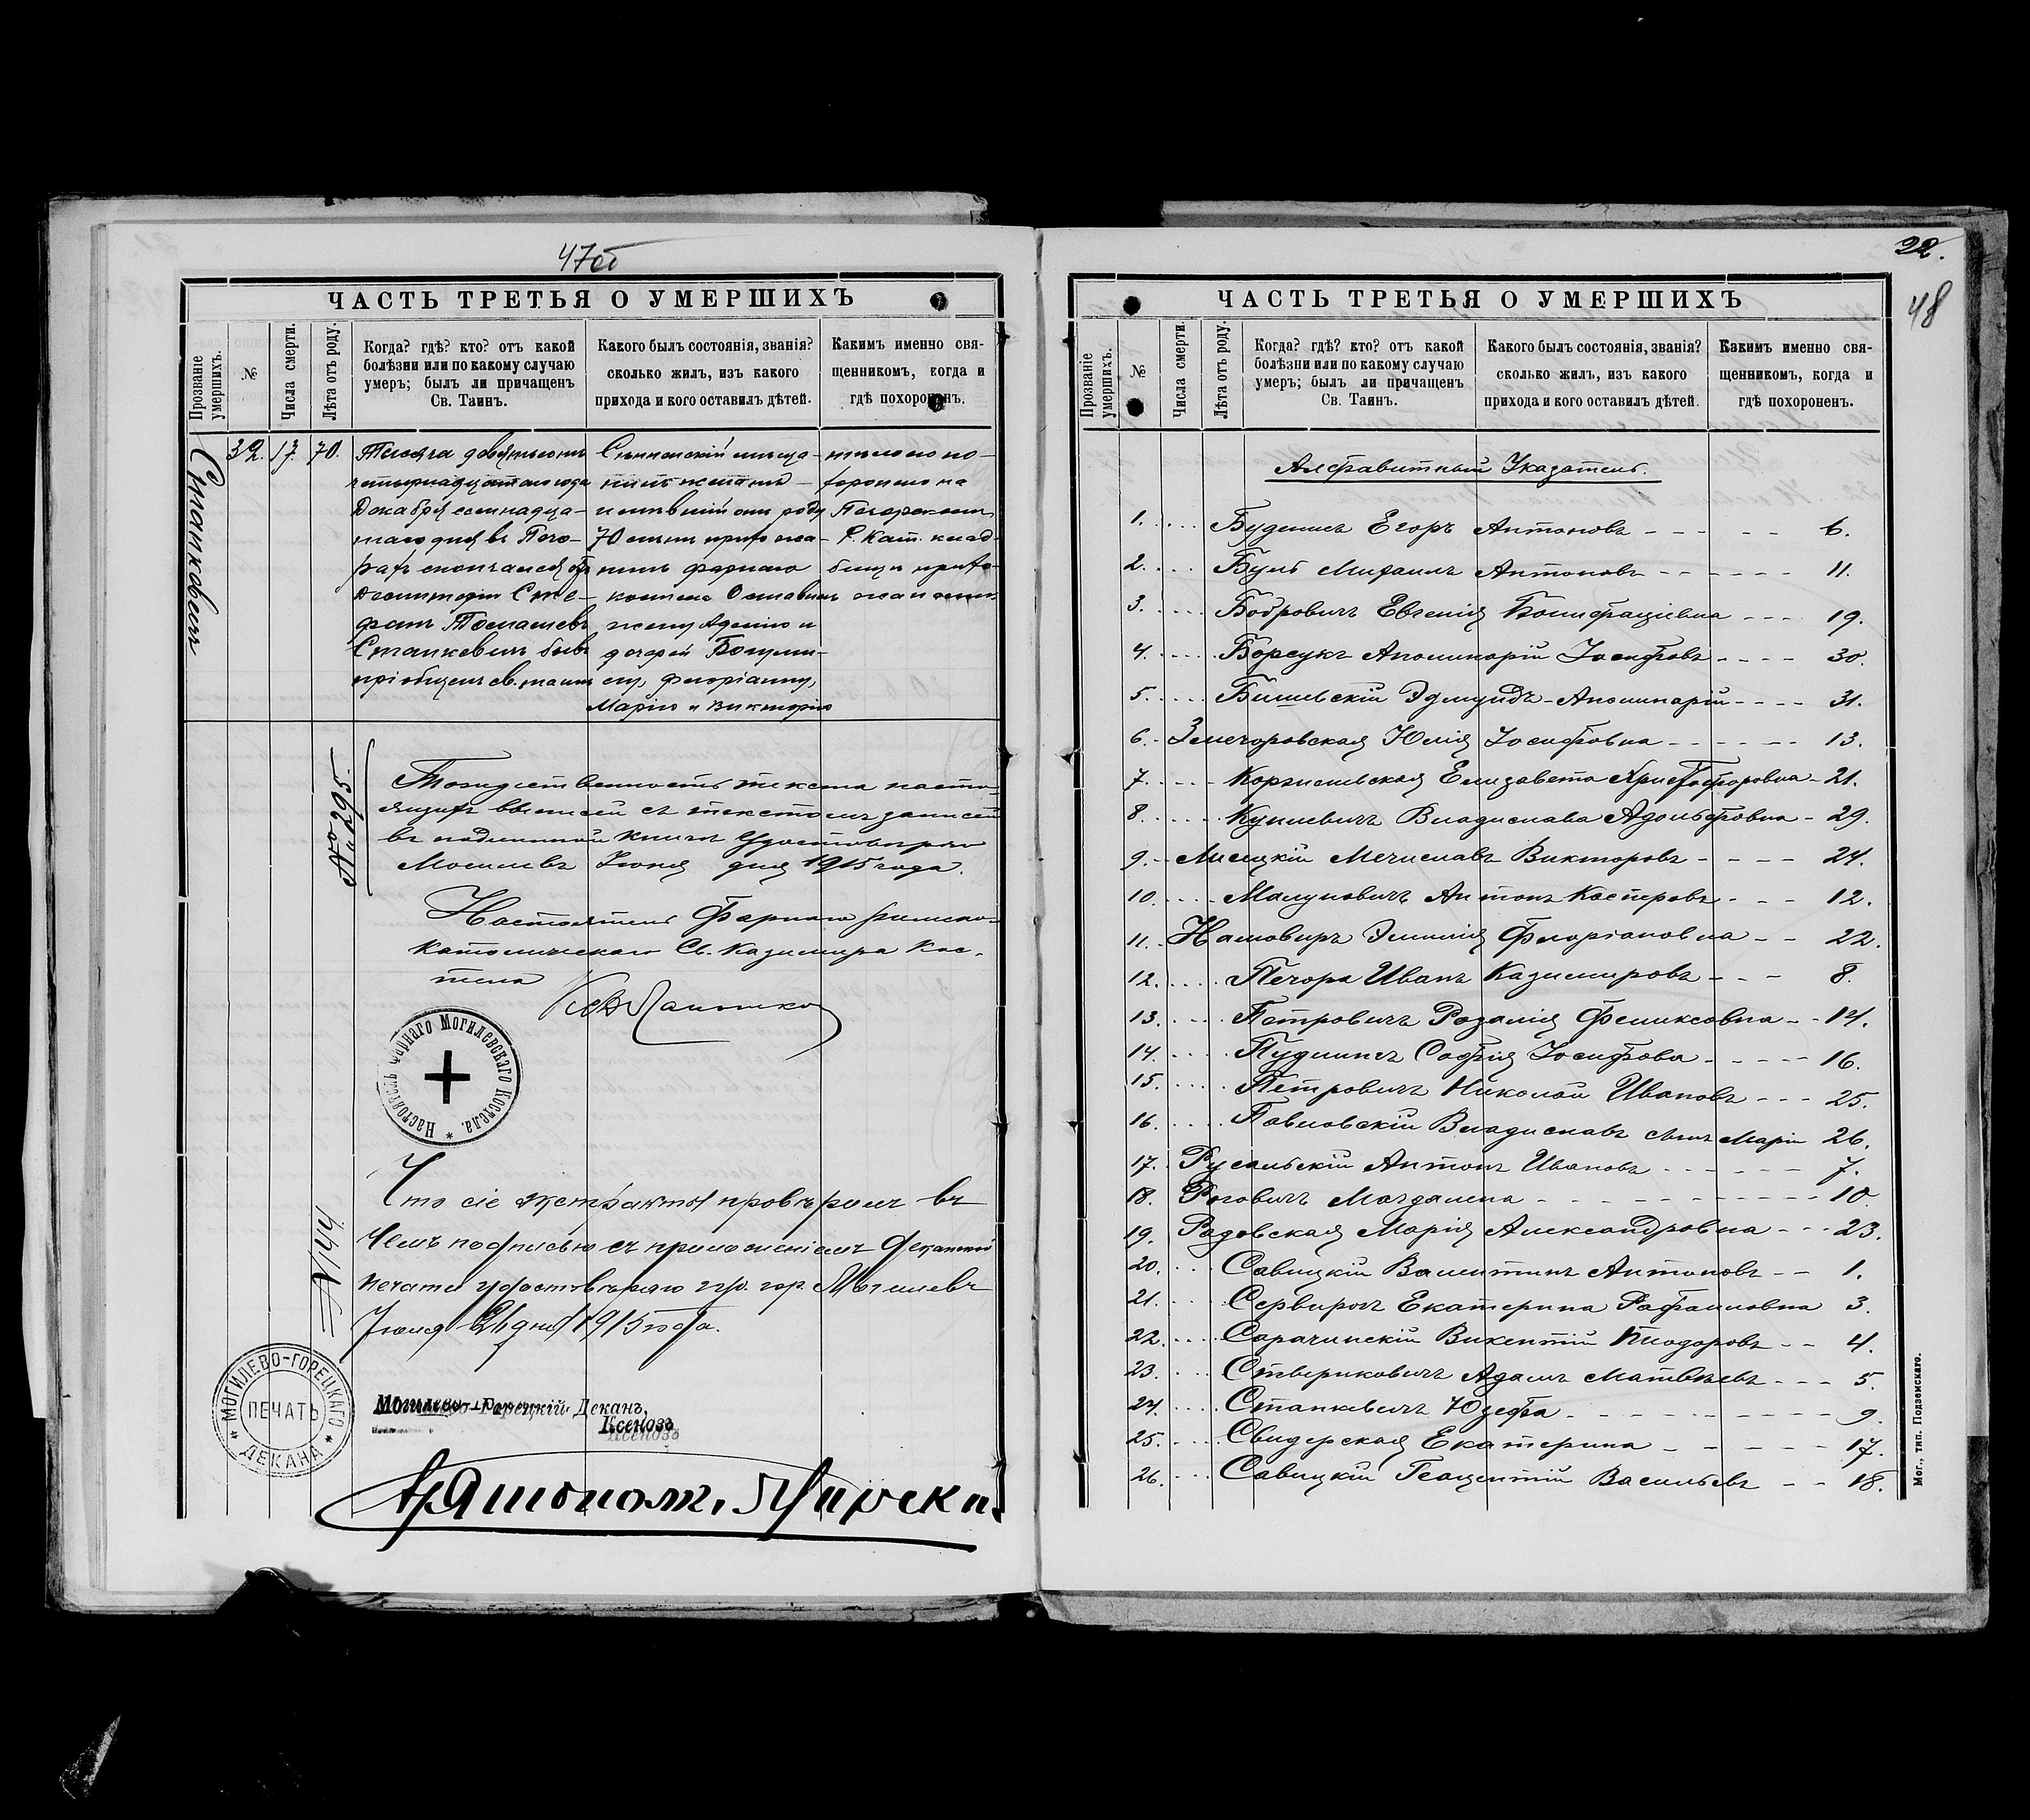 47об
ЧАСТЬ ТРЕТЬЯ О УМЕРШИХЪ
Прозваніе умершихъ.
№
Числа смерти.
Лѣта отъ роду.
Когда? гдѣ? кто? отъ какой
болѣзни или по какому случаю
умеръ; былъ ли причащенъ
Св. Таинъ.
Какого былъ состоянія, званія?
сколько жилъ, изъ какого
прихода и кого оставилъ дѣтей.
Какимъ именно свя-
щенникомъ, когда и
гдѣ похороненъ.
Станкевичъ
32. 17. 70.
Тысяча девятьсотъ
четырнадцатаго года
Декабря семнадца-
таго дня въ
скончался
Сте-
фанъ Томашевъ
Станкевичъ бывъ
пріобщенъ св. таинъ
мѣща-
нинъ женатъ
имѣвшій отъ роду
70 лѣтъ прихожа-
нинъ фарнаго
костела Оставилъ
жену и
дочерей
Марію и Викторію
тѣло его по-
хоронено на
Р. Кат. клад-
бищѣ
№ 295.
Тождественность текста насто-
ящихъ выписей съ текстомъ записей
въ подлинной книгѣ удостовѣряю
Могилевъ Іюня дня 1915 года.
Настоятель Фарнаго римско-
католическаго Св. Казимира Кос-
тела
Настоятель Фарнаго Могилевскаго Костела.
№ 144
Что сіе экстракты провѣрены въ
чемъ подписью съ приложеніемъ Деканской
печати удостовѣряю гор. Могилевъ
Іюля 21 дня 1915 года.
МОГИЛЕВО-ГОРЕЦКАГО ДЕКАНА
ПЕЧАТЬ
Могилево-Горецкій Деканъ,
Ксендзъ
22.
48
ЧАСТЬ ТРЕТЬЯ О УМЕРШИХЪ
Прозваніе умершихъ.
№
Числа смерти.
Лѣта отъ роду.
Когда? гдѣ? кто? отъ какой
болѣзни или по какому случаю
умеръ; былъ ли причащенъ
Св. Таинъ.
Какого былъ состоянія, званія?
сколько жилъ, изъ какого
прихода и кого оставилъ дѣтей.
Какимъ именно свя-
щенникомъ, когда и
гдѣ похороненъ.
Алфавитный Указатель.
1. Егоръ Антоновъ 6.
2. Буль Михаилъ Антоновъ 11.
3. Бобровичъ Евгенія Бонифаціевна 19.
4. Борсукъ Аполинарій Іосифовъ 30.
5. Эдмундъ-Аполинарій 31.
6. Юлія Іосифовна 13.
7. Елизавета Христофоровна 21.
8. Владислава Адольфовна 29.
9. Лисецкій Мечиславъ Викторовъ 24.
10. Антонъ Касперовъ 12.
11. Эмилія Флоріановна 22.
12. Печора Иванъ Казимировъ 8.
13. Петровичъ Розалія Феликсовна 14.
14. Софія Іосифова 16.
15. Петровичъ Николай Ивановъ 25.
16. Павловскій Владиславъ сынъ Маріи 26.
17. Антонъ Ивановъ 7.
18. Роговичъ Магдалина 10.
19. Радовская Марія Александровна 23.
20. Савицкій Валентинъ Антоновъ 1.
21. Екатерина Рафаиловна 3.
22. Сарачинскій Викентій Теодоровъ 4.
23. Адамъ Матвѣевъ 5.
24. Станкевичъ Юзефа 9.
25. Свидерская Екатерина 17.
26. Савицкій Васильевъ 18.
Мог., тип. Подземскаго.